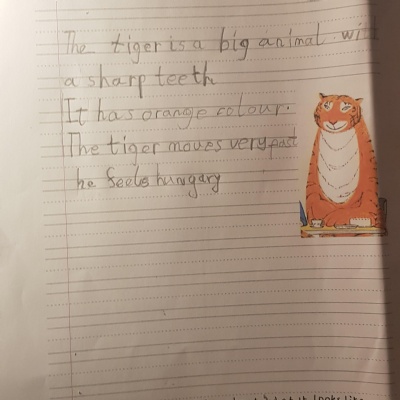 The tiger is a big animal wi
a sharp teeth
It has orange colour.
The tiger moves very past
he feels hungary
it looks like